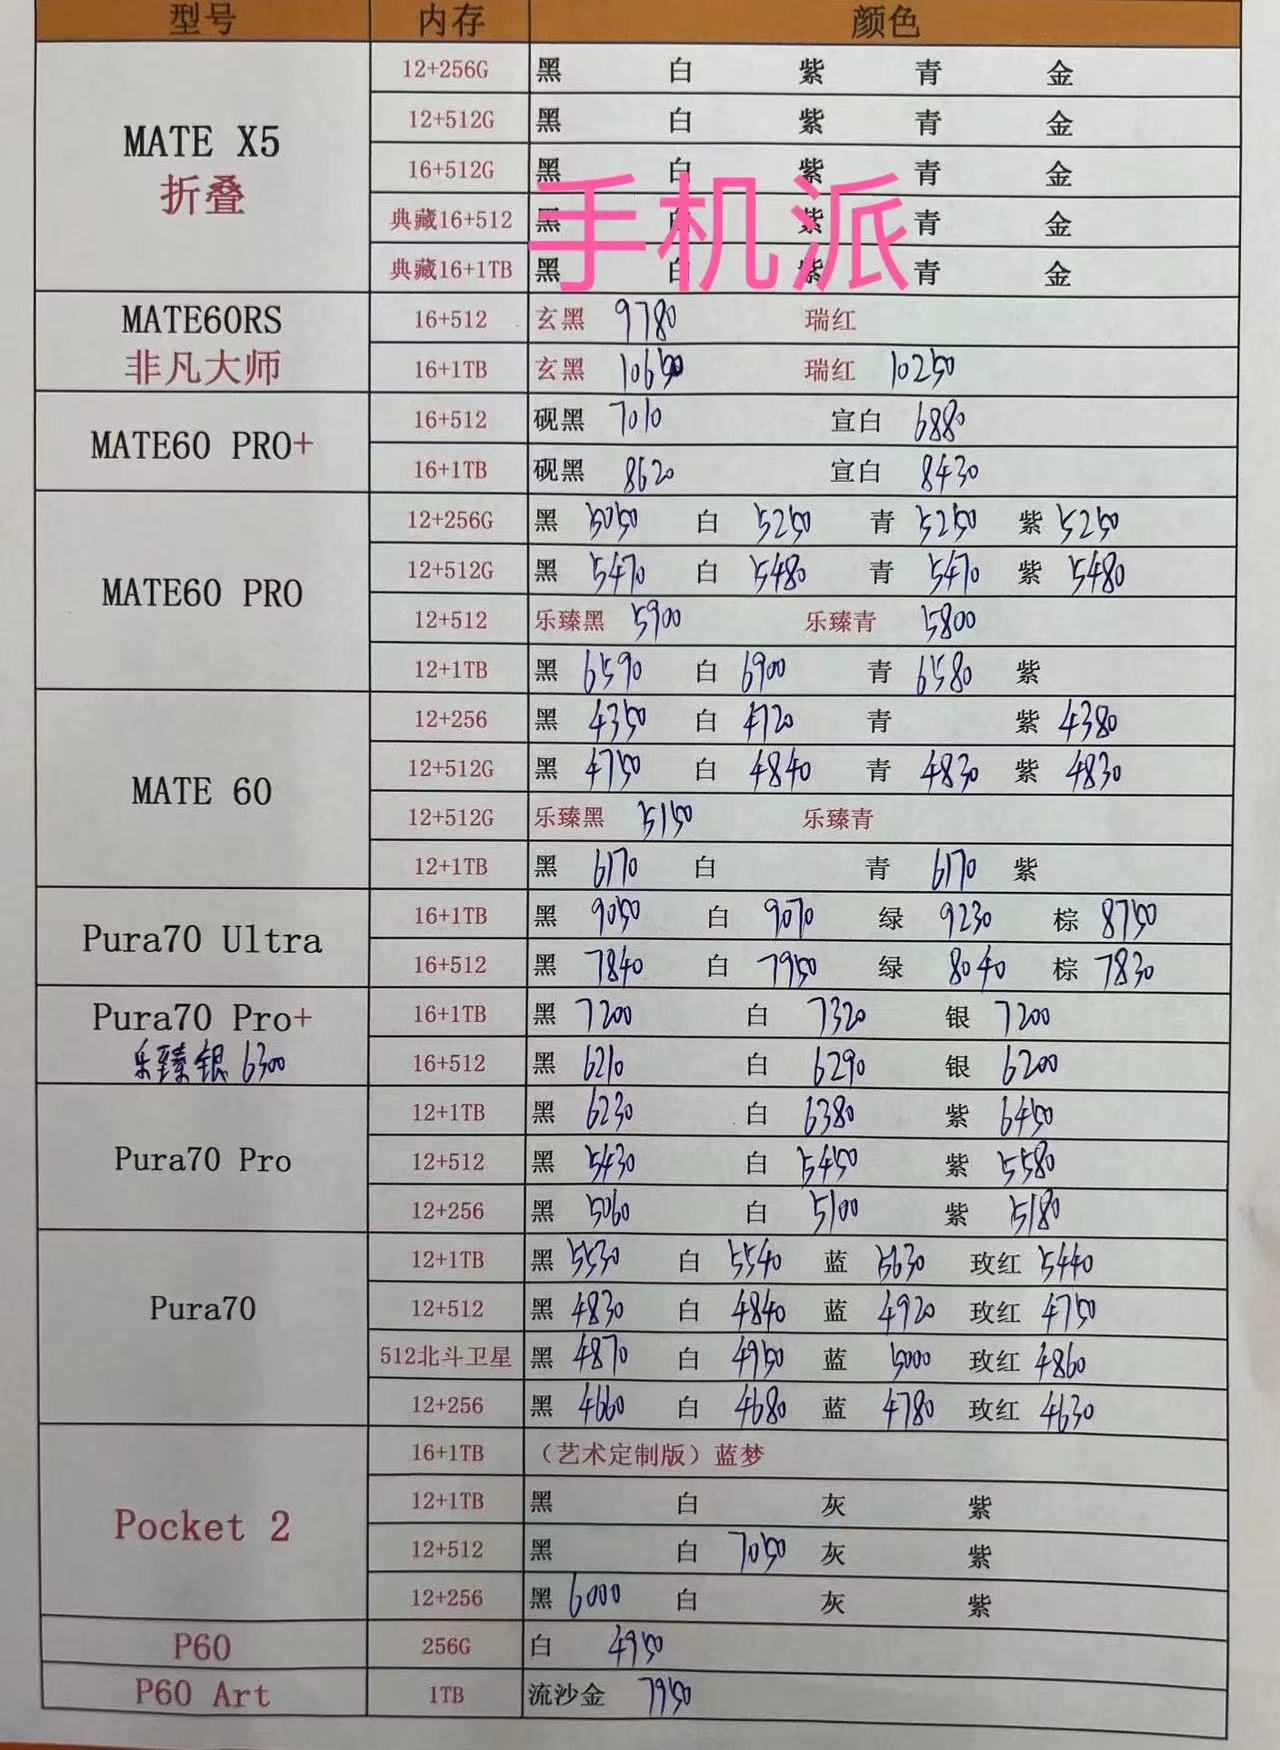 型号 内存 颜色
MATE X5 折叠
12+256G 黑 白 紫 青 金
12+512G 黑 白 紫 青 金
16+512G 黑 白 紫 青 金
典藏16+512 黑 白 紫 青 金
典藏16+1TB 黑 白 紫 青 金
手机派
MATE60RS 非凡大师
16+512 玄黑 9780 瑞红
16+1TB 玄黑 10650 瑞红 10250
MATE60 PRO+
16+512 砚黑 7010 宣白 6880
16+1TB 砚黑 8620 宣白 8430
MATE60 PRO
12+256G 黑 5050 白 5250 青 5250 紫 5250
12+512G 黑 5470 白 5480 青 5470 紫 5480
12+512 乐臻黑 5900 乐臻青 5800
12+1TB 黑 6590 白 6900 青 6580 紫
MATE 60
12+256 黑 4350 白 4720 青 紫 4380
12+512G 黑 4750 白 4840 青 4830 紫 4830
12+512G 乐臻黑 5150 乐臻青
12+1TB 黑 6170 白 青 6170 紫
Pura70 Ultra
16+1TB 黑 9050 白 9070 绿 9230 棕 8750
16+512 黑 7840 白 7950 绿 8040 棕 7830
Pura70 Pro+
乐臻银 6300
16+1TB 黑 7200 白 7320 银 7200
16+512 黑 6210 白 6290 银 6200
Pura70 Pro
12+1TB 黑 6230 白 6380 紫 6450
12+512 黑 5430 白 5450 紫 5580
12+256 黑 5060 白 5100 紫 5180
Pura70
12+1TB 黑 5530 白 5540 蓝 5630 玫红 5440
12+512 黑 4830 白 4840 蓝 4920 玫红 4750
512北斗卫星 黑 4870 白 4950 蓝 5000 玫红 4860
12+256 黑 4660 白 4680 蓝 4780 玫红 4630
Pocket 2
16+1TB （艺术定制版）蓝梦
12+1TB 黑 白 灰 紫
12+512 黑 白 7050 灰 紫
12+256 黑 6000 白 灰 紫
P60 256G 白 4950
P60 Art 1TB 流沙金 7950